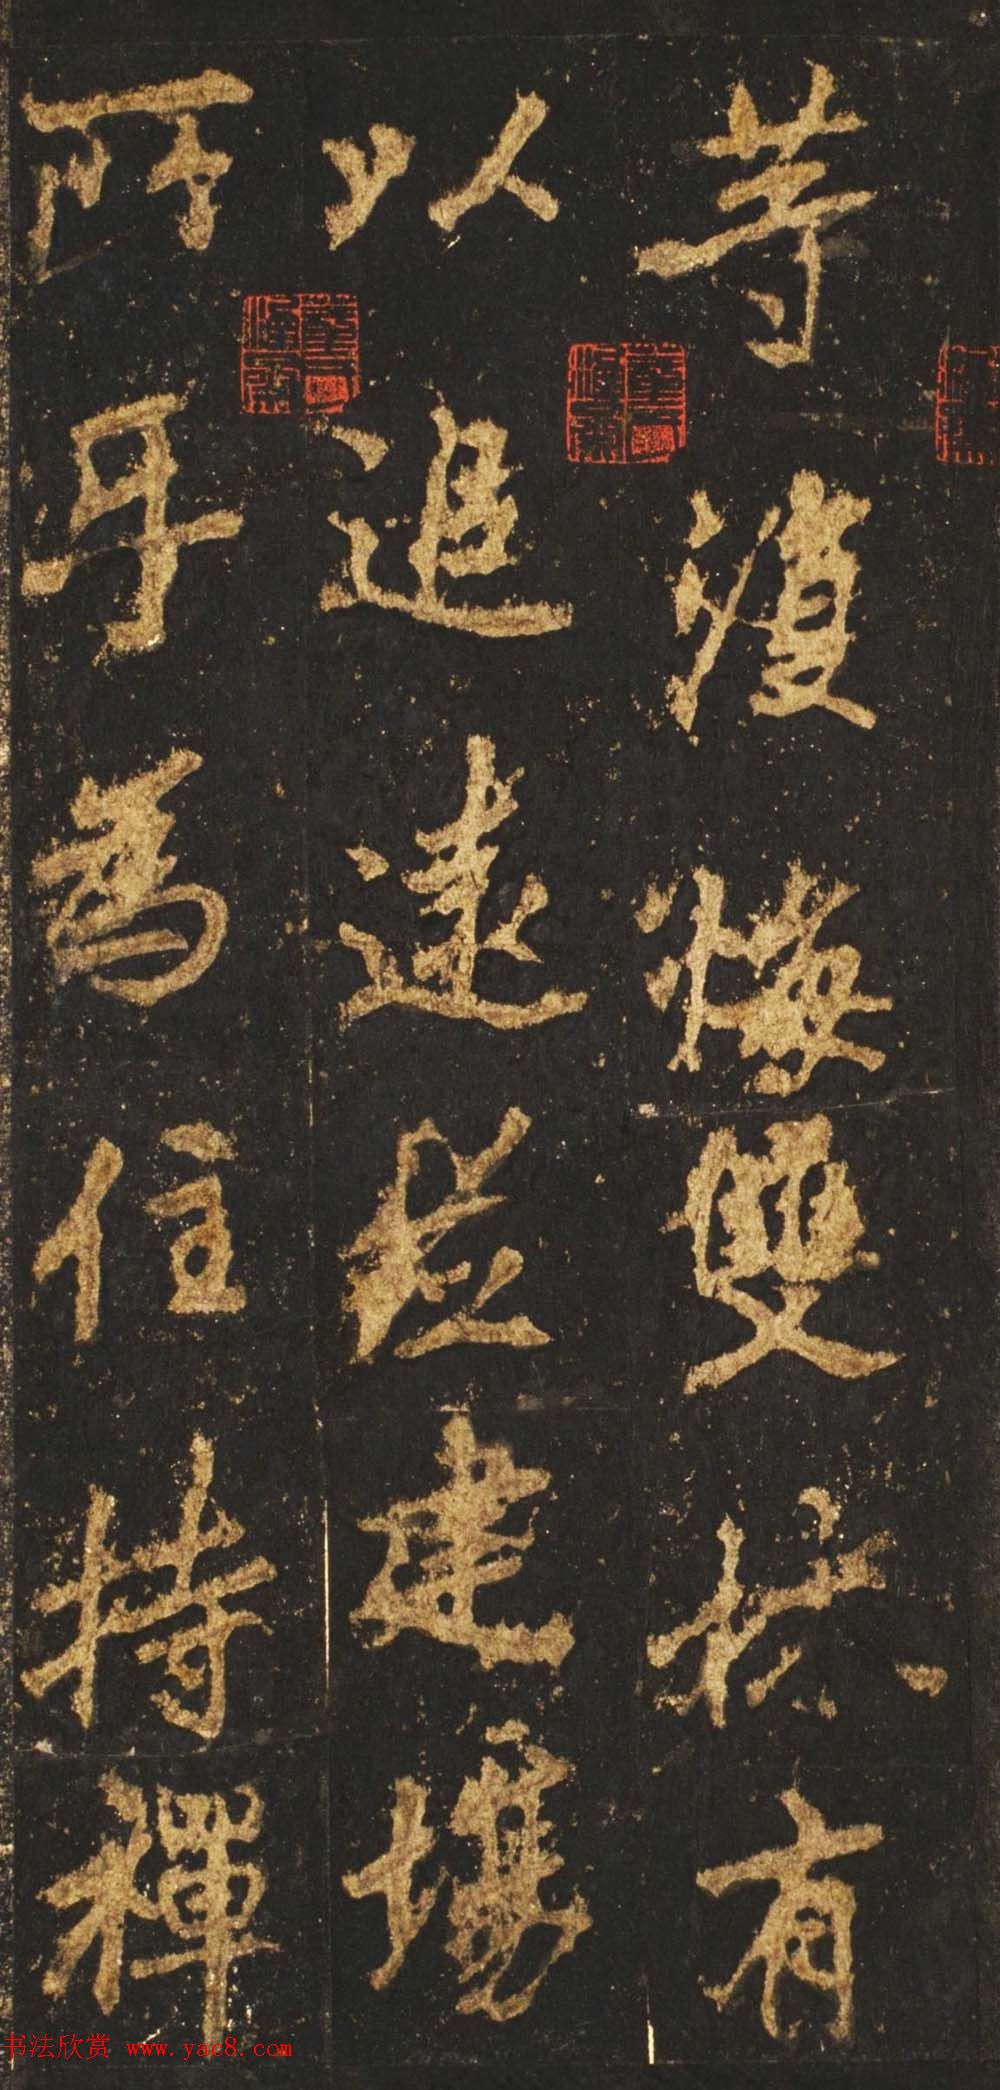 等復悔雙林有
以追遠建場
所乎為住持禪
书法欣赏 www.yac8.com